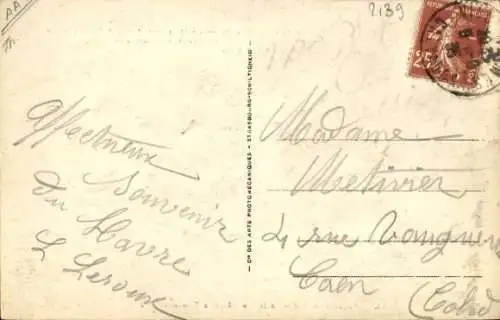 AA
2139
Affectueux
Souvenir
du Havre
L Leroux
— Cie DES ARTS PHOTOMÉCANIQUES - STRASBOURG-SCHILTIGHEIM —
Madame
Metivier
4 rue Vauquelin
Caen